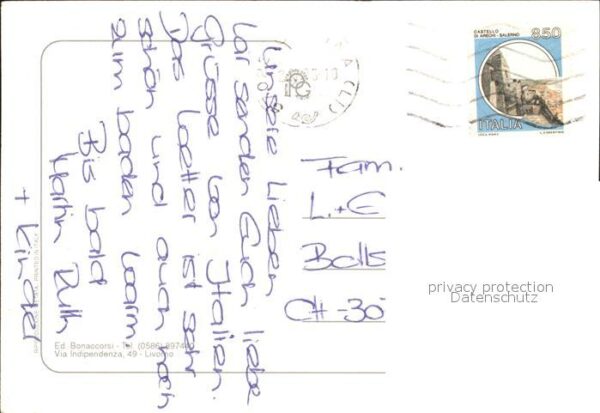 Unsere Lieben
wir senden Euch liebe
Grüsse von Italien.
Das Wetter ist sehr
schön und auch noch
zum baden warm
Bis bald
Martin Ruth
+ Kinder
CASTELLO
DI ARECHI - SALERNO
850
ITALIA
Fam.
L.+E
Balls
CH-30
privacy protection
Datenschutz
Ed. Bonaccorsi - Tel. (0586) 897440
Via Indipendenza, 49 - Livorno